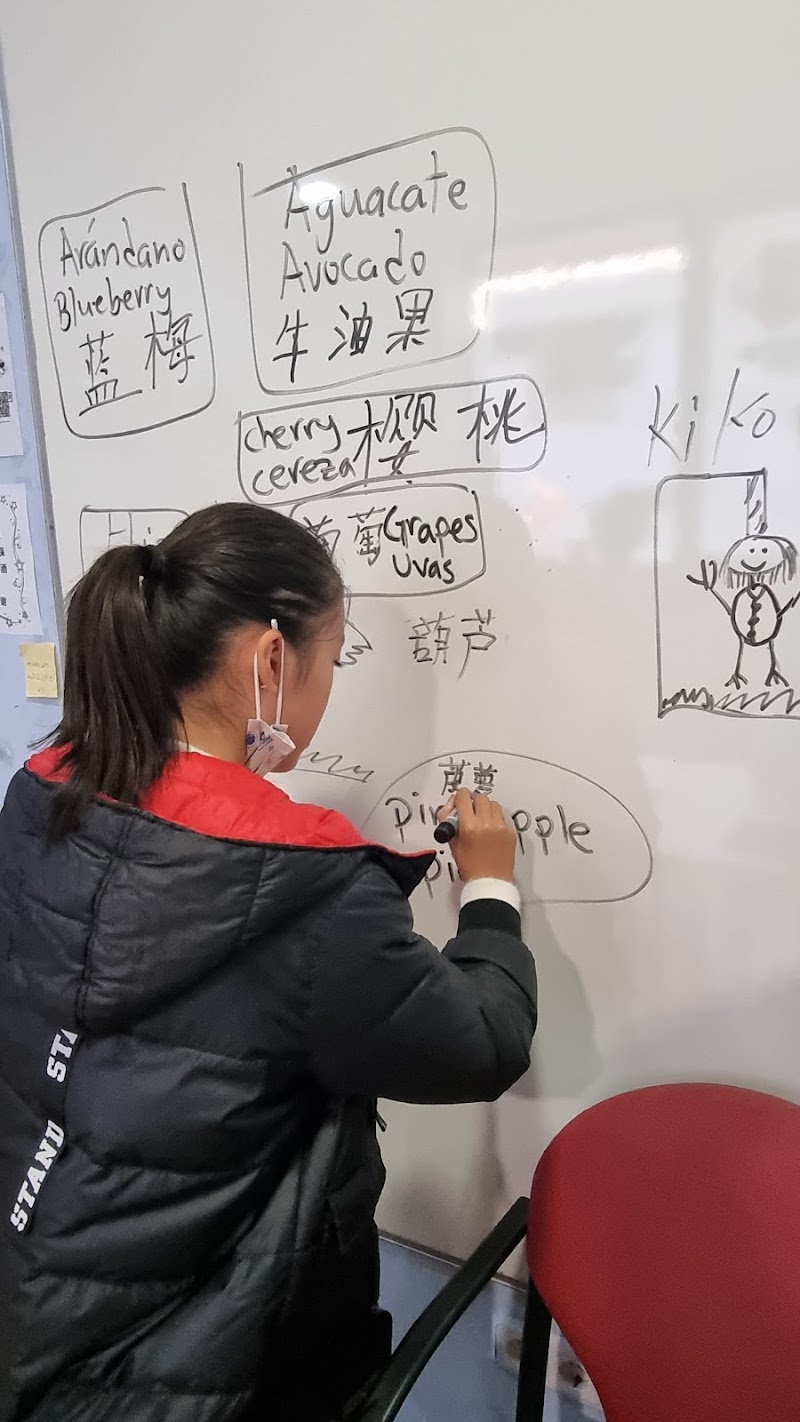 Arándano
Blueberry
蓝 梅
Aguacate
Avocado
牛 油 果
cherry 樱 桃
cereza
葡萄Grapes
Uvas
葫芦
pi pple
pi
KiKo
STAND